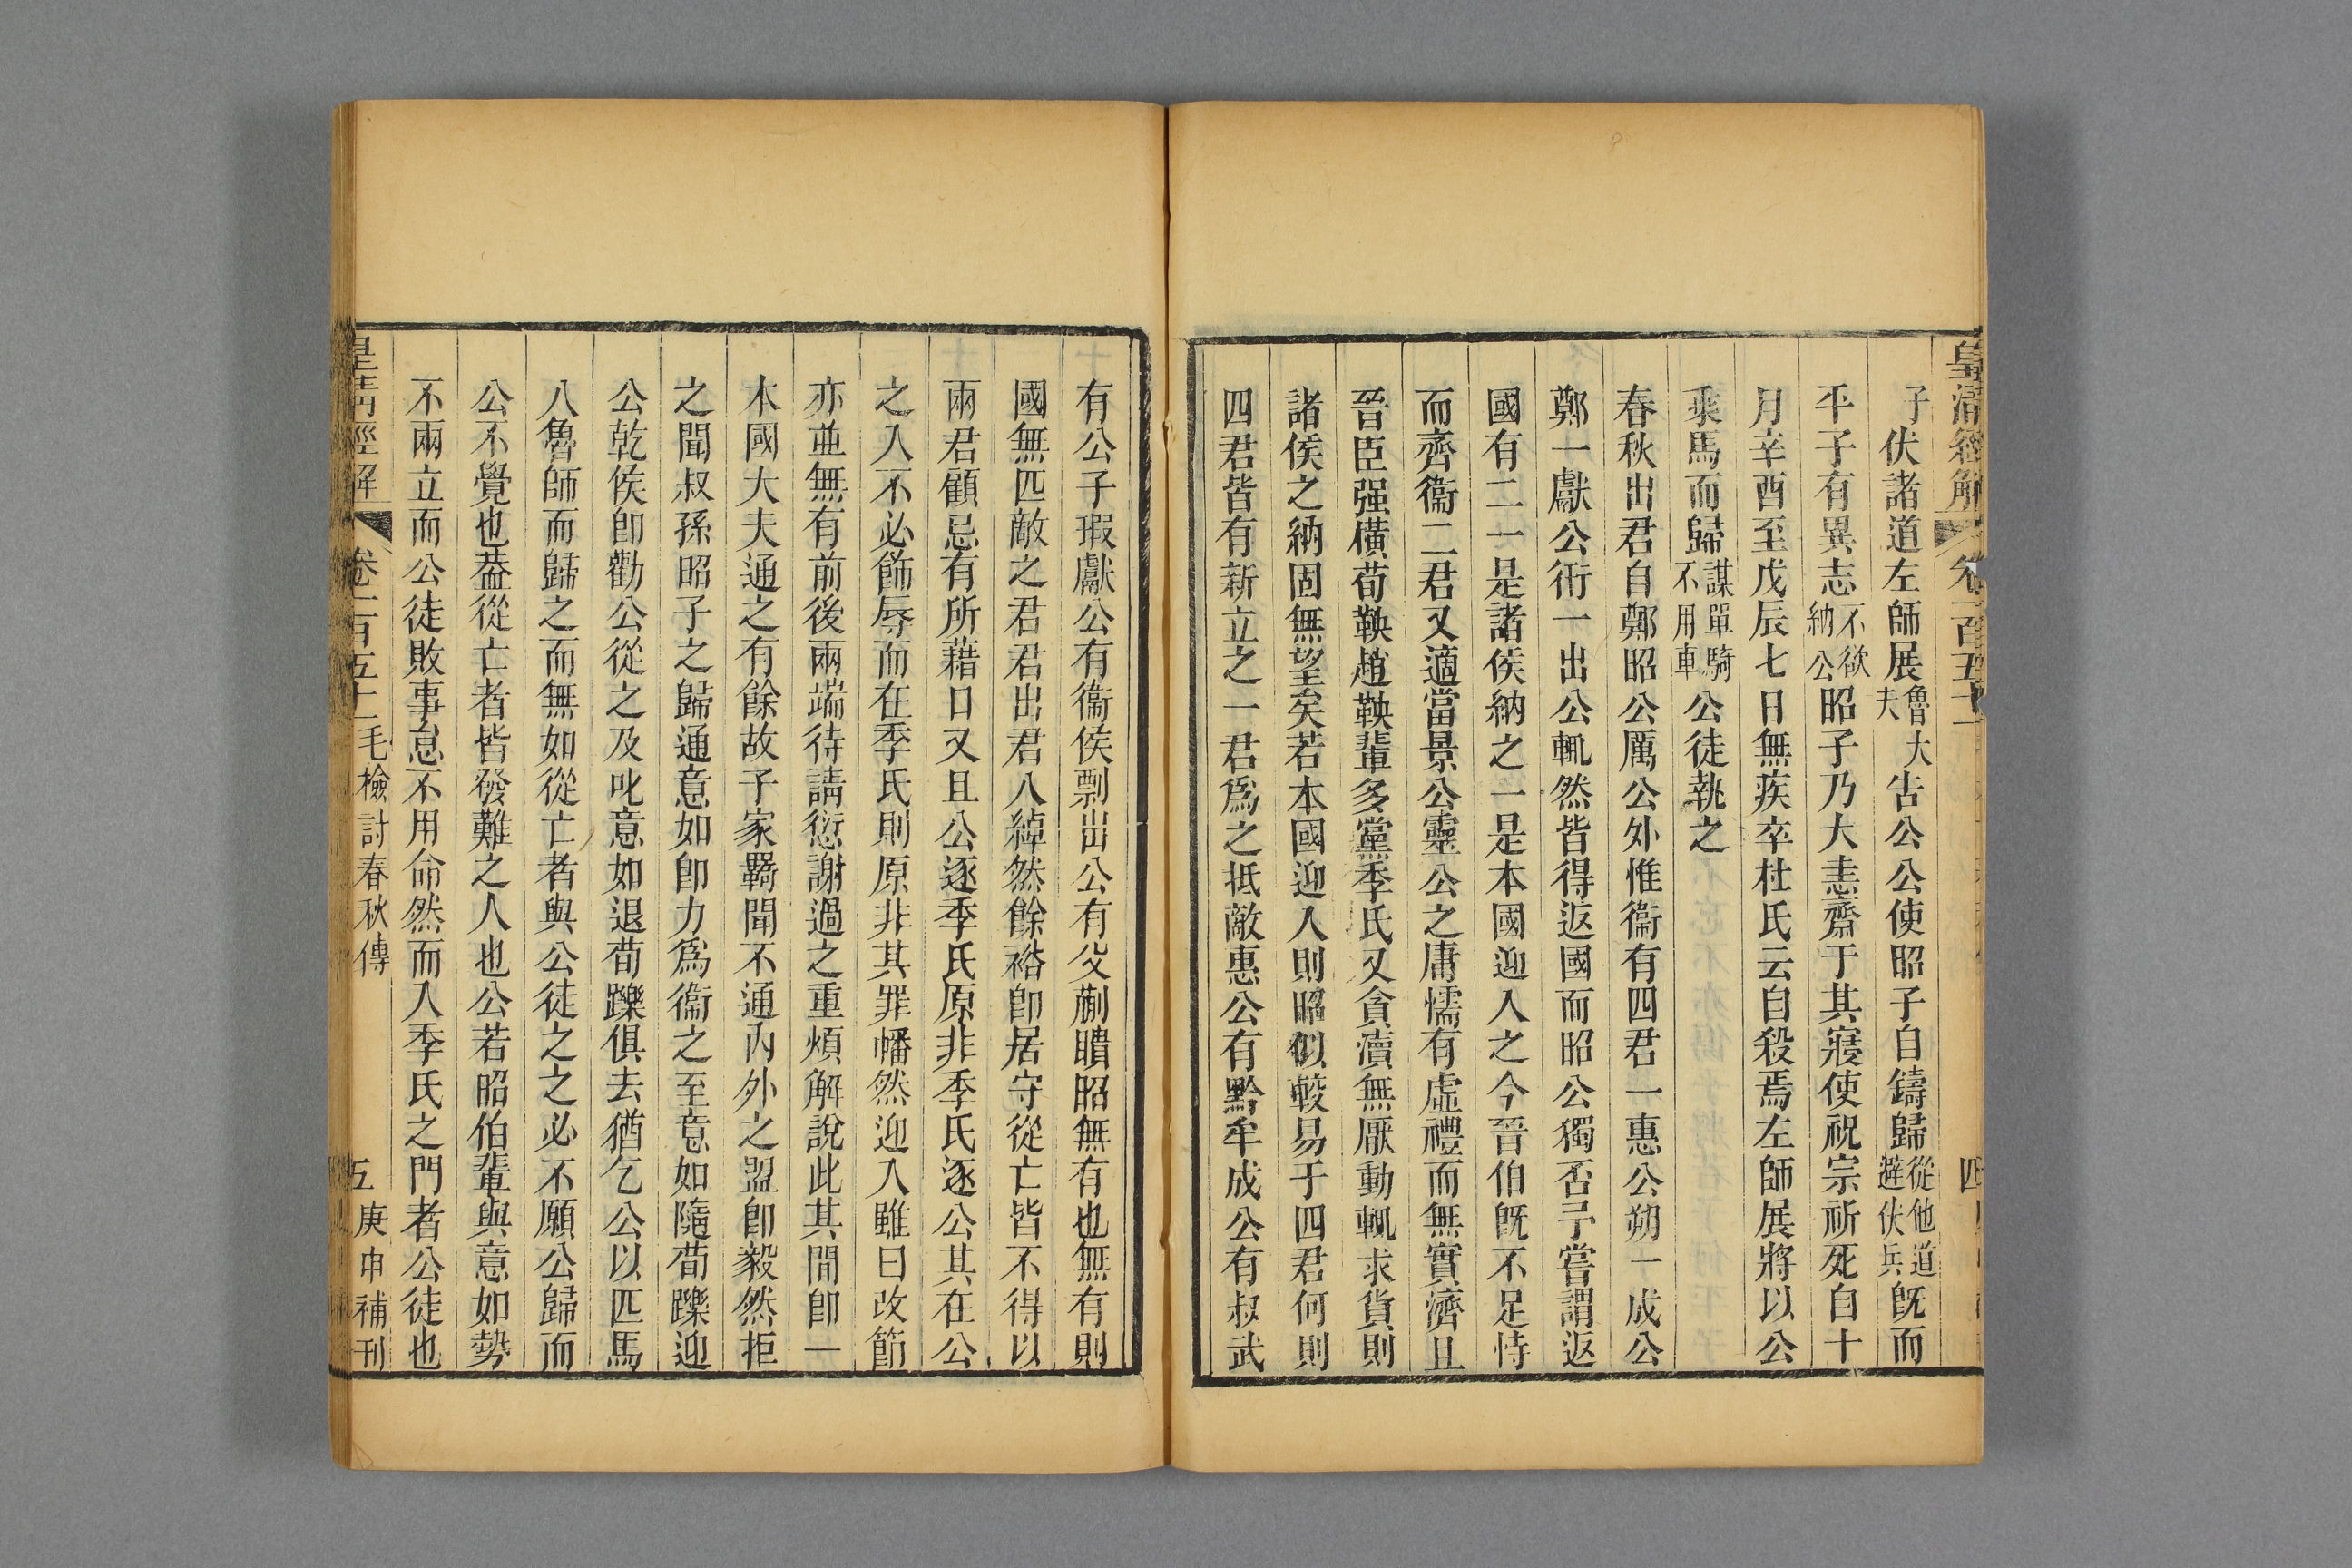 皇清經解 卷一百五十一 四
子伏諸道左師展魯大夫告公公使昭子自鑄歸從他道避伏兵旣而
平子有異志不欲納公昭子乃大恚齋于其寢使祝宗祈死自十
月辛酉至戊辰七日無疾卒杜氏云自殺焉左師展將以公
乘馬而歸謀單騎不用車公徒執之
春秋出君自鄭昭公厲公外惟衞有四君一惠公朔一成公
鄭一獻公衎一出公輒然皆得返國而昭公獨否予嘗謂返
國有二一是諸侯納之一是本國迎入之今晉伯旣不足恃
而齊衞二君又適當景公靈公之庸懦有虛禮而無實濟且
晉臣强橫荀鞅趙鞅輩多黨季氏又貪瀆無厭動輒求貨則
諸侯之納固無望矣若本國迎入則昭似較易于四君何則
四君皆有新立之一君爲之抵敵惠公有黔牟成公有叔武
有公子瑕獻公有衞侯剽出公有父蒯聵昭無有也無有則
國無匹敵之君君出君入綽然餘裕卽居守從亡皆不得以
兩君顧忌有所藉口又且公逐季氏原非季氏逐公其在公
之入不必飾辱而在季氏則原非其罪幡然迎入雖曰改節
亦並無有前後兩端待請愆謝過之重煩解說此其間卽一
本國大夫通之有餘故子家羈聞不通內外之盟卽毅然拒
之聞叔孫昭子之歸通意如卽力爲衞之至意如隨荀躒迎
公乾侯卽勸公從之及叱意如退荀躒俱去猶乞公以匹馬
入魯師而歸之而無如從亡者與公徒之之必不願公歸而
公不覺也葢從亡者皆發難之人也公若昭伯輩與意如勢
不兩立而公徒敗事怠不用命然而入季氏之門者公徒也
皇清經解 卷一百五十一 毛檢討春秋傳 五 庚申補刊